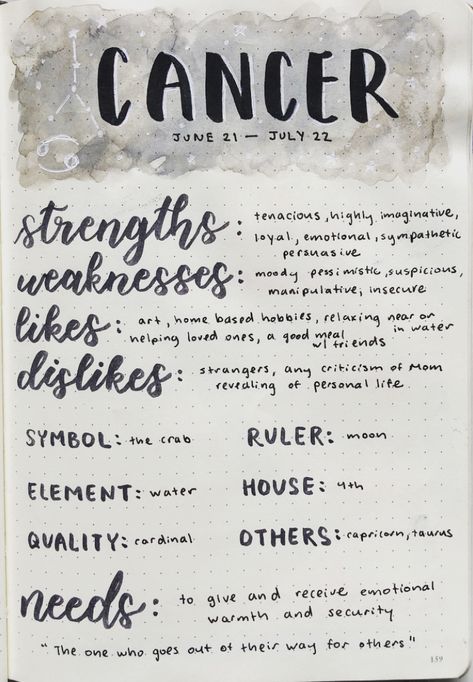 CANCER
JUNE 21 — JULY 22
strengths: tenacious, highly imaginative,
loyal, emotional, sympathetic
persuasive
weaknesses: moody pessimistic, suspicious,
manipulative, insecure
likes: art, home based hobbies, relaxing near or
in water
helping loved ones, a good meal
w/ friends
dislikes: strangers, any criticism of Mom
revealing of personal life
SYMBOL: the crab RULER: moon
ELEMENT: water HOUSE: 4th
QUALITY: cardinal OTHERS: capricorn, taurus
needs: to give and receive emotional
warmth and security
"The one who goes out of their way for others"
159